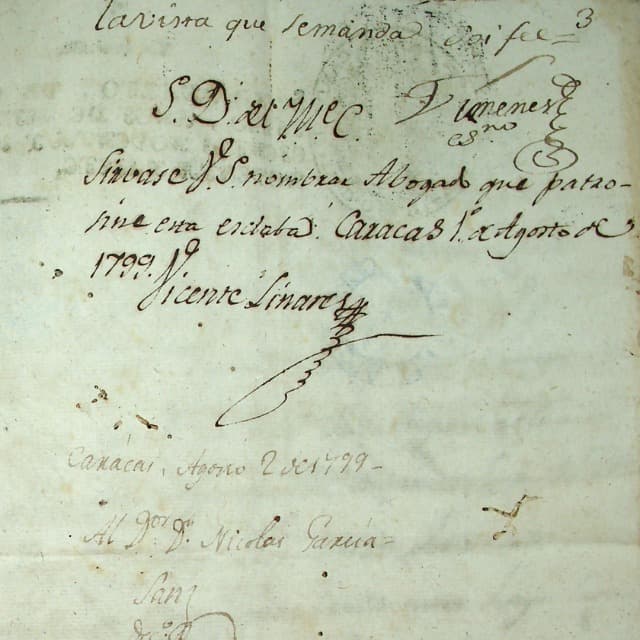 la vista que se manda doi fee = 3
Ximenes
esno
Sirvase V.S. nombrar Abogado que patro-
sine esta esclaba. Caracas 1º de Agosto de
1799.
Vicente Linares
Caracas, Agosto 2 de 1799 -
Al Dor. Dn. Nicolas Garcia -
Sanz